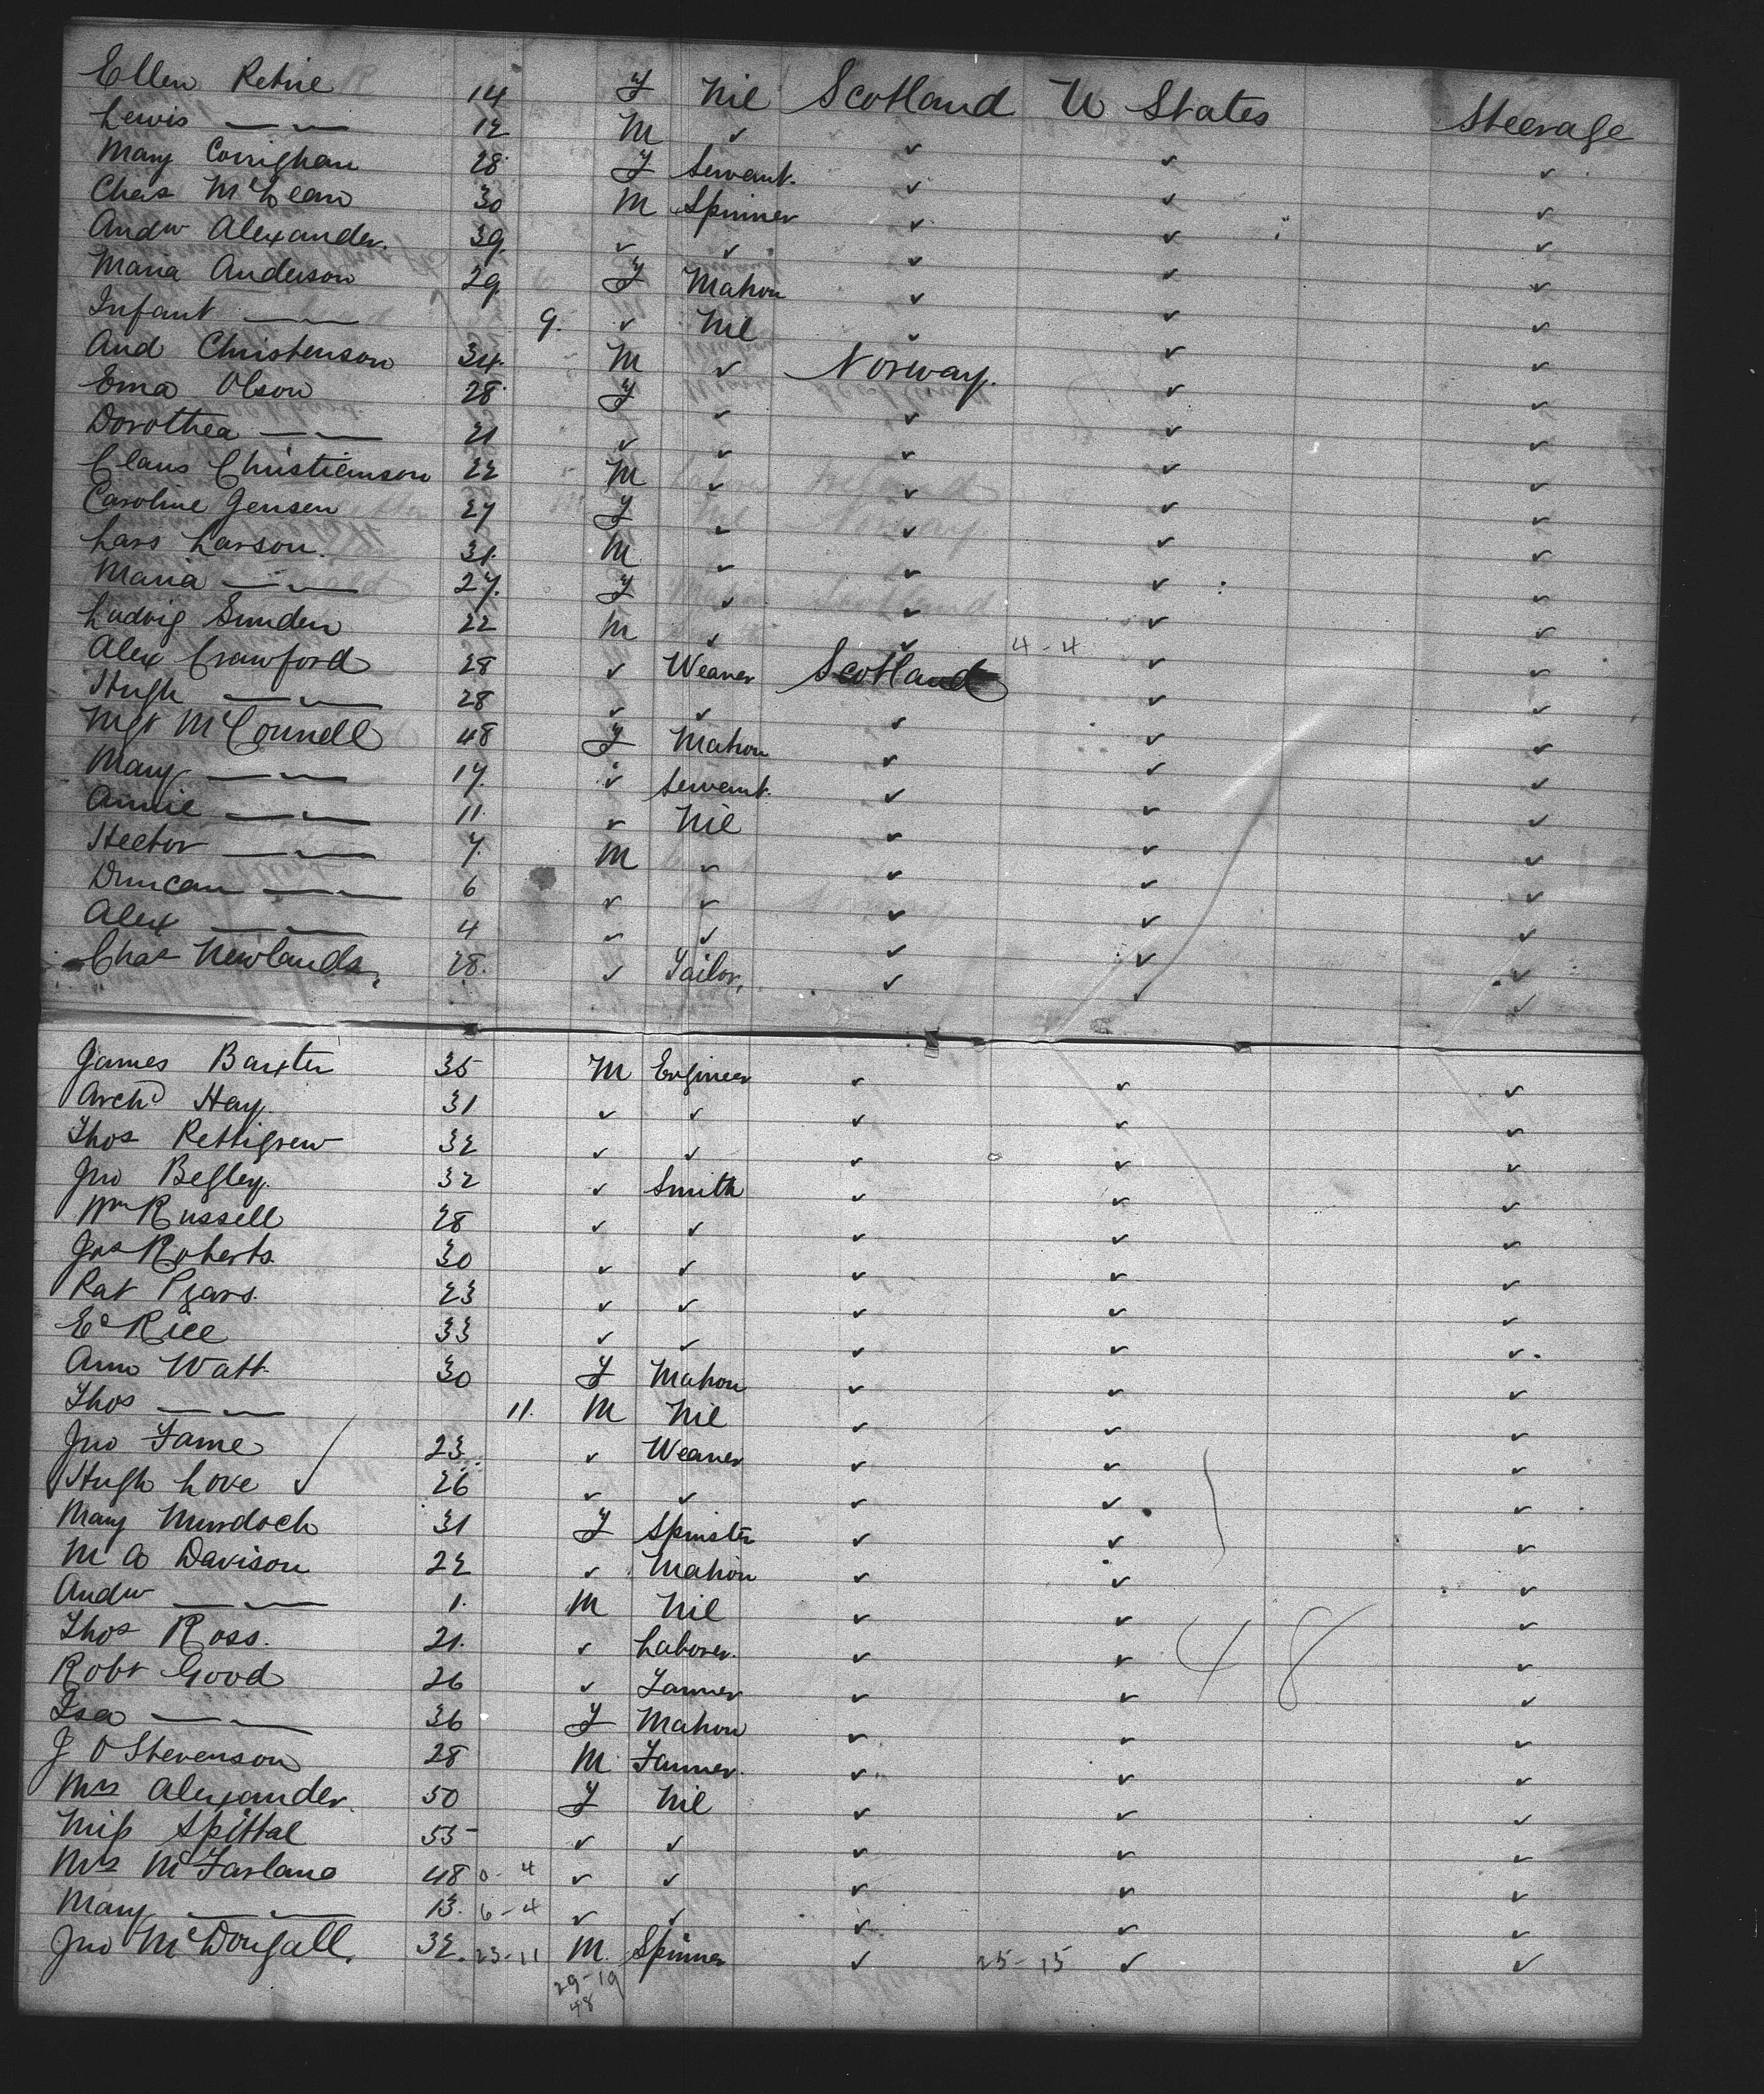 Ellen Retrie 14 F Nil Scotland U States Steerage
Lewis —— 12 M ✓ ✓ ✓ ✓
Mary Corrighan 28 F Servant ✓ ✓ ✓
Chas McLean 30 M Spinner ✓ ✓ ✓
Andw Alexander 39 ✓ ✓ ✓ ✓ ✓
Maria Anderson 29 F Matron ✓ ✓ ✓
Infant —— 9 ✓ Nil ✓ ✓ ✓
And Christenson 34 M ✓ Norway ✓ ✓
Ema Olson 28 F ✓ ✓ ✓ ✓
Dorothea —— 21 ✓ ✓ ✓ ✓ ✓
Claus Christianson 22 M ✓ ✓ ✓ ✓
Caroline Jensen 27 F ✓ ✓ ✓ ✓
Lars Larson 31 M ✓ ✓ ✓ ✓
Maria —— 27 F ✓ ✓ ✓ ✓
Ludvig Sunden 22 M ✓ ✓ 4-4 ✓ ✓
Alex Crawford 28 ✓ Weaver Scotland ✓ ✓
Hugh —— 28 ✓ ✓ ✓ ✓ ✓
Mgt McConnell 48 F Matron ✓ ✓ ✓
Mary —— 17 ✓ Servant ✓ ✓ ✓
Annie —— 11 ✓ Nil ✓ ✓ ✓
Hector —— 7 M ✓ ✓ ✓ ✓
Duncan —— 6 ✓ ✓ ✓ ✓ ✓
Alex —— 4 ✓ ✓ ✓ ✓ ✓
Chas Newlands 28 ✓ Tailor ✓ ✓ ✓
James Baxter 35 M Engineer ✓ ✓ ✓
Archd Hay 31 ✓ ✓ ✓ ✓ ✓
Thos Pettigrew 32 ✓ ✓ ✓ ✓ ✓
Jno Begley 32 ✓ Smith ✓ ✓ ✓
Wm Russell 28 ✓ ✓ ✓ ✓ ✓
Jas Roberts 30 ✓ ✓ ✓ ✓ ✓
Pat 23 ✓ ✓ ✓ ✓ ✓
Ed Rice 33 ✓ ✓ ✓ ✓ ✓
Ann Watt 30 F Matron ✓ ✓ ✓
Thos —— 11 M Nil ✓ ✓ ✓
Jno 23 ✓ Weaver ✓ ✓ ✓
Hugh Love ✓ 26 ✓ ✓ ✓ ✓ ✓
Mary Murdoch 31 F Spinster ✓ ✓ ✓
M A Davison 22 ✓ Matron ✓ ✓ ✓
Andw —— 1 M Nil ✓ ✓ ✓
Thos Ross 21 ✓ Laborer ✓ ✓ ✓
Robt Good 26 ✓ Farmer ✓ ✓ 48 ✓
Isa —— 36 F Matron ✓ ✓ ✓
J O Stevenson 28 M Farmer ✓ ✓ ✓
Mrs Alexander 50 F Nil ✓ ✓ ✓
Miss Spittal 55 ✓ ✓ ✓ ✓ ✓
Mrs McFarlane 48 0-4 ✓ ✓ ✓ ✓ ✓
Mary —— 13 6-4 ✓ ✓ ✓ ✓ ✓
Jno McDougall 32 23-11 M Spinner ✓ 25-15 ✓ ✓
29-19
48